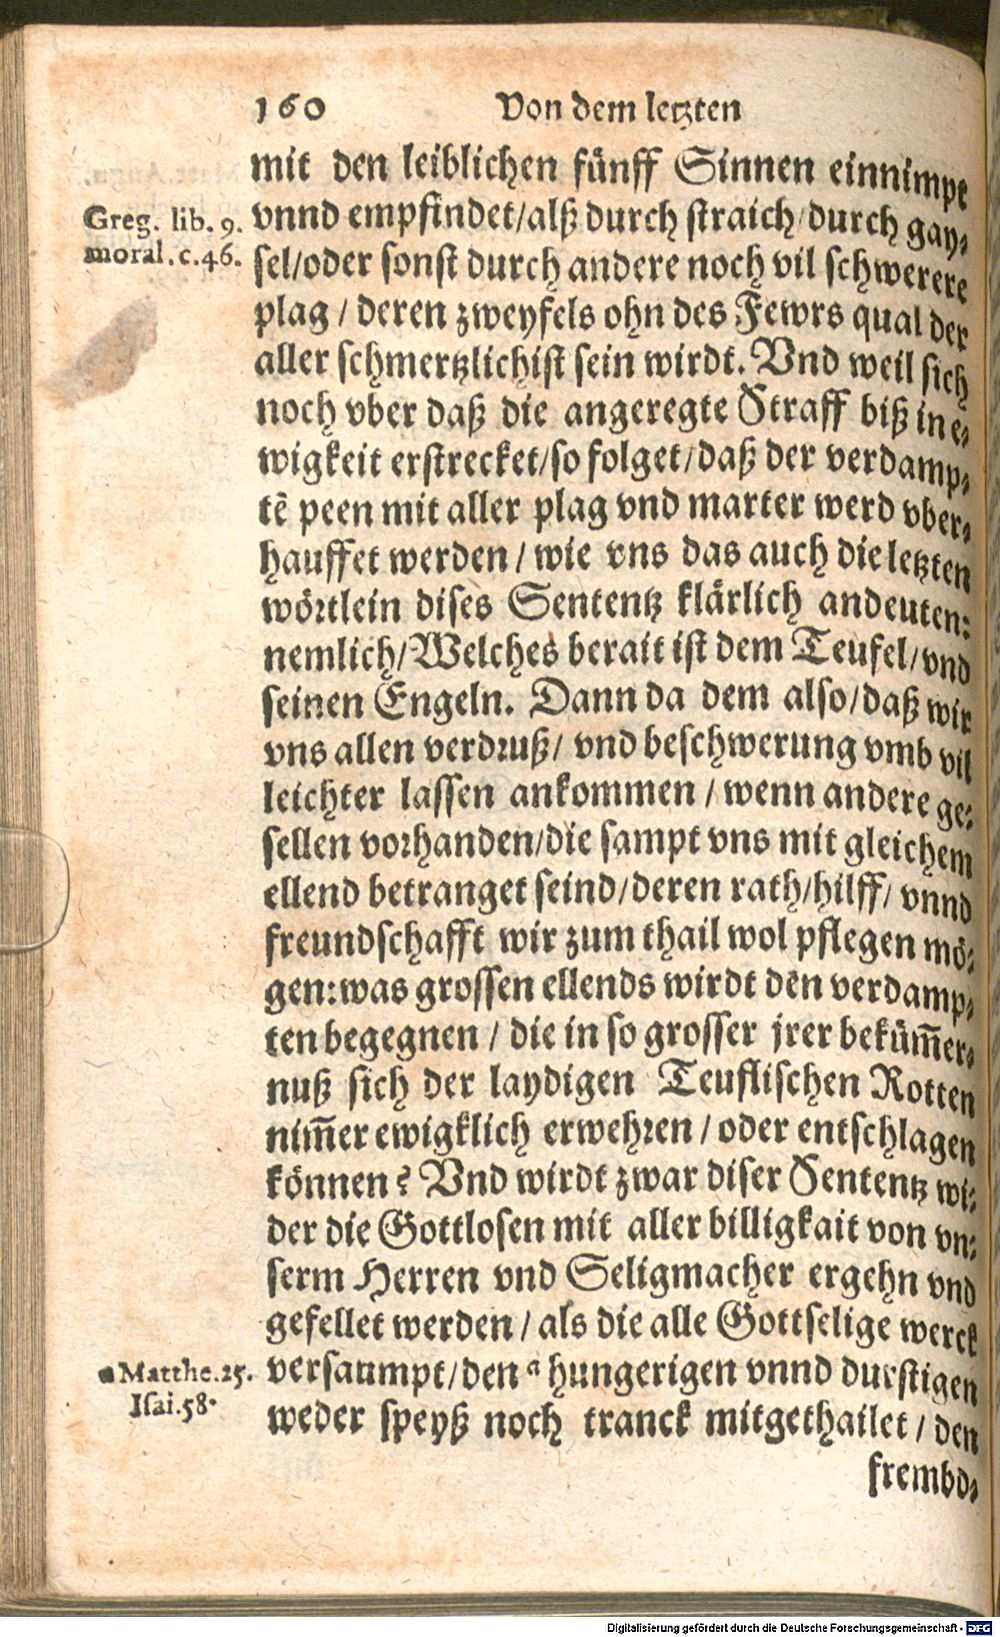 160 Von dem letzten
mit den leiblichen fünff Sinnen einnimpt
Greg. lib. 9.
moral. c. 46.
vnnd empfindet/alß durch straich/durch gay-
sel/oder sonst durch andere noch vil schwerere
plag / deren zweyfels ohn des Fewrs qual der
aller schmertzlichist sein wirdt. Vnd weil sich
noch vber daß die angeregte Straff biß in e-
wigkeit erstrecket/so folget/daß der verdamp-
tē peen mit aller plag vnd marter werd vber-
hauffet werden / wie vns das auch die letzten
wörtlein dises Sententz klärlich andeuten:
nemlich/Welches berait ist dem Teufel/vnd
seinen Engeln. Dann da dem also/daß wir
vns allen verdruß/ vnd beschwerung vmb vil
leichter lassen ankommen / wenn andere ge-
sellen vorhanden/die sampt vns mit gleichem
ellend betranget seind/deren rath/hilff/ vnnd
freundschafft wir zum thail wol pflegen mö-
gen:was grossen ellends wirdt den verdamp-
ten begegnen / die in so grosser jrer bekum̄er-
nuß sich der laydigen Teuflischen Rotten
nim̄er ewigklich erwehren / oder entschlagen
können? Vnd wirdt zwar diser Sententz wi-
der die Gottlosen mit aller billigkait von vn-
serm Herren vnd Seligmacher ergehn vnd
gefellet werden / als die alle Gottselige werck
a Matthe. 25.
Isai. 58.
versaumpt/den a hungerigen vnnd durstigen
weder speyß noch tranck mitgethailet / den
frembd-
Digitalisierung gefördert durch die Deutsche Forschungsgemeinschaft - DFG